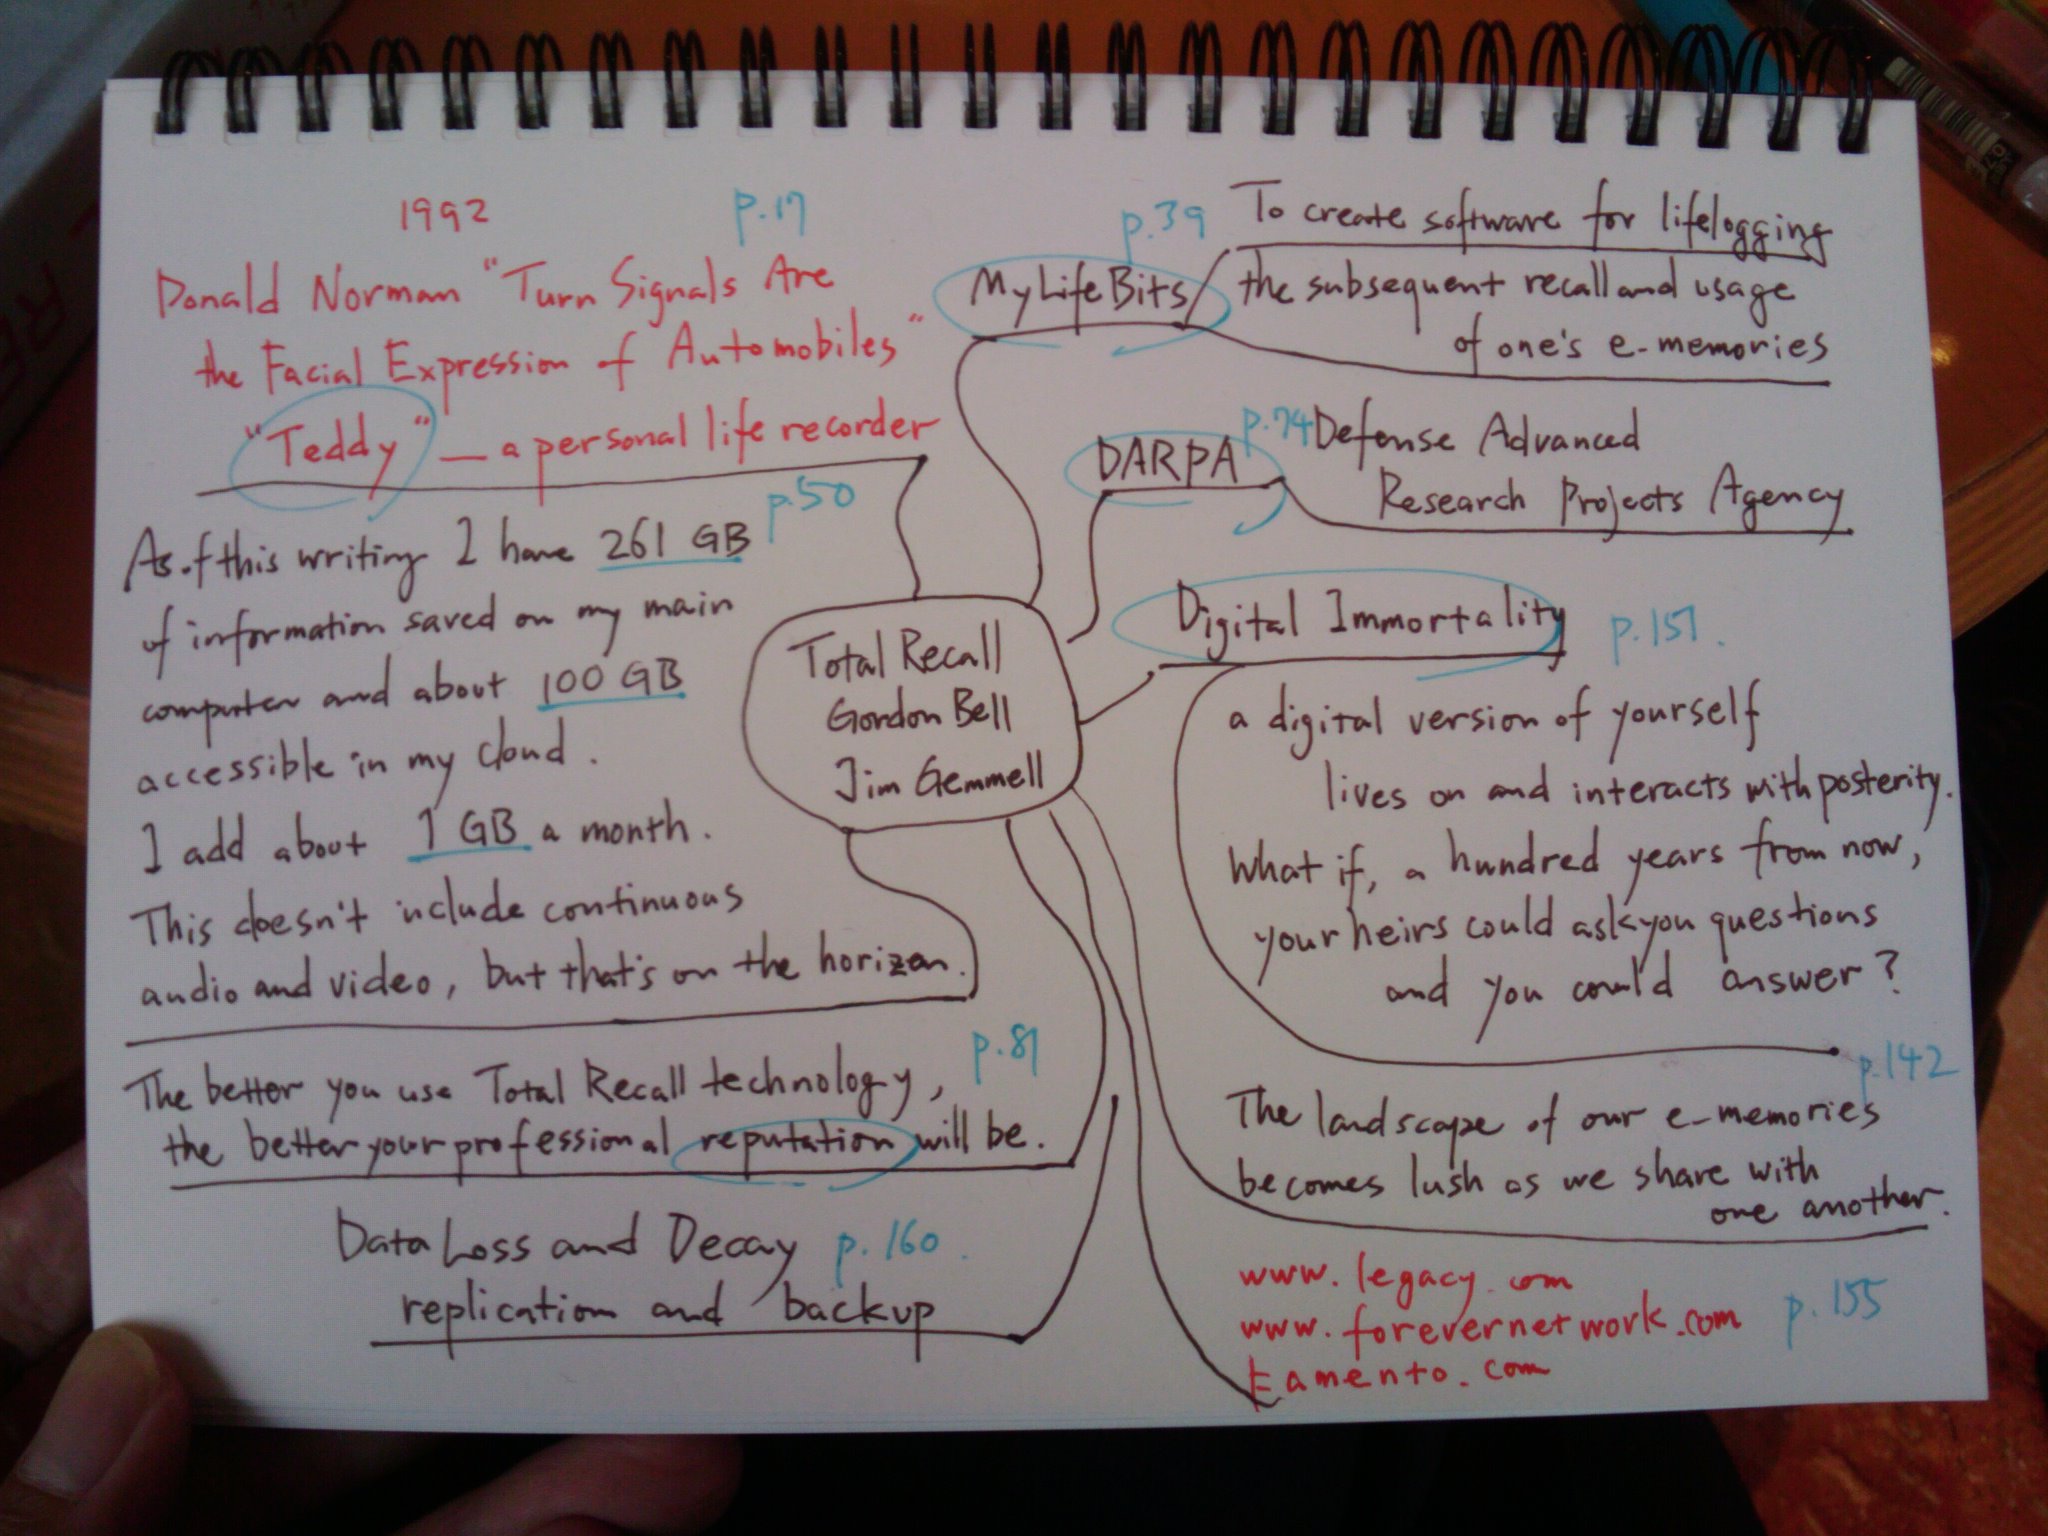 1992
p.17
Donald Norman "Turn Signals Are
the Facial Expression of Automobiles"
"Teddy" — a personal life recorder
p.50
As of this writing I have 261 GB
of information saved on my main
computer and about 100 GB
accessible in my cloud.
I add about 1 GB a month.
This doesn't include continuous
audio and video, but that's on the horizon.
p.81
The better you use Total Recall technology,
the better your professional reputation will be.
Data Loss and Decay p.160
replication and backup
Total Recall
Gordon Bell
Jim Gemmell
p.39
MyLifeBits
To create software for lifelogging
the subsequent recall and usage
of one's e-memories
p.74
DARPA
Defense Advanced
Research Projects Agency
Digital Immortality
p.151.
a digital version of yourself
lives on and interacts with posterity.
What if, a hundred years from now,
your heirs could ask you questions
and you could answer?
p.142
The landscape of our e-memories
becomes lush as we share with
one another.
www.legacy.com
www.forevernetwork.com
p.155
Eamento.com